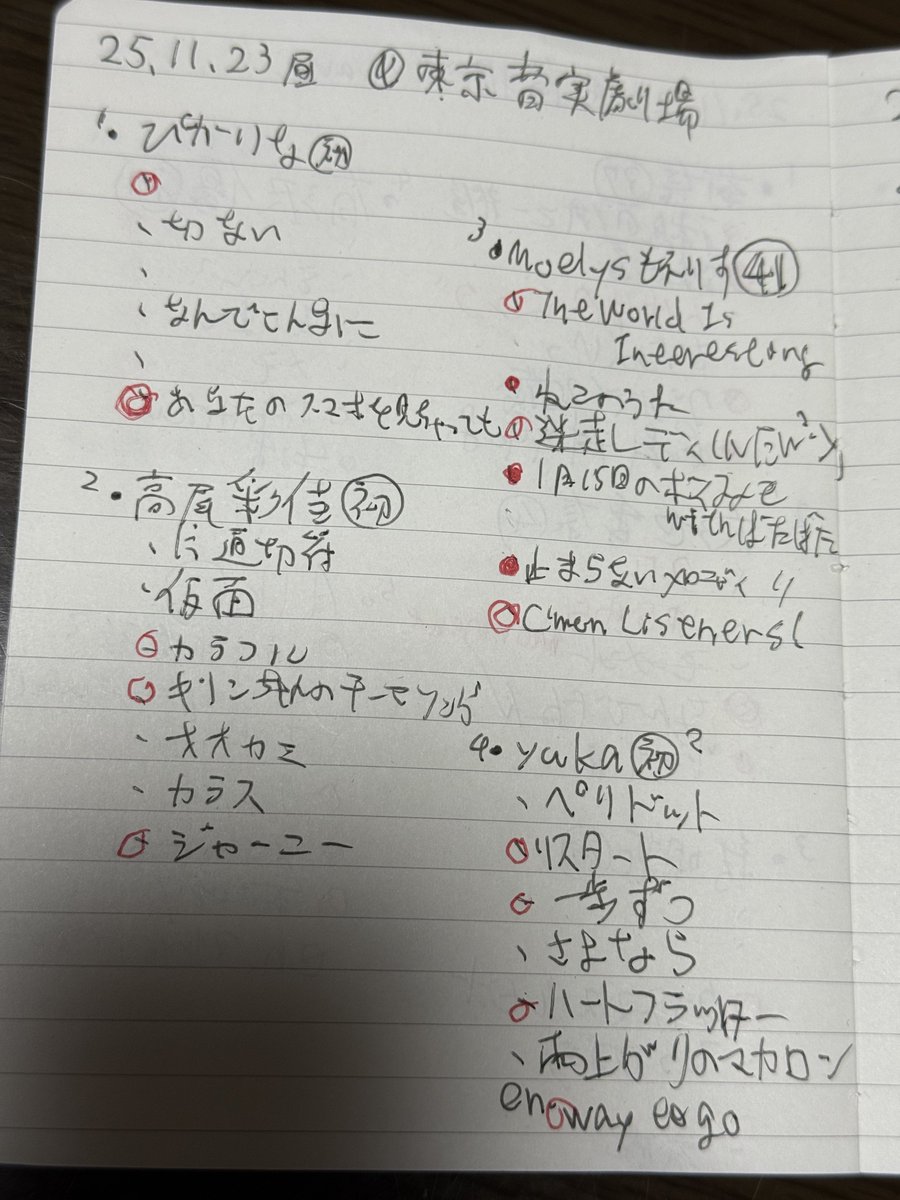 25.11.23 昼 @東京音実劇場
1. ぴかりな 初
切ない
なんでこんなに
あなたのスマホを見ちゃっても
2. 高尾彩佳 初
片道切符
仮面
カラフル
キリンちゃんのテーマソング
オオカミ
カラス
ジャーニー
3. Moelysもえりす 41
The World Is
Interesting
ねこのうた
迷走レディ(W^2)
1月15日のポスみを
withばたばた
止まらないメロディ
C'mon Listeners!
4. yuka 初 2
ペリドット
リスタート
一歩ずつ
さよなら
ハートフラッター
雨上がりのマカロン
one way to go